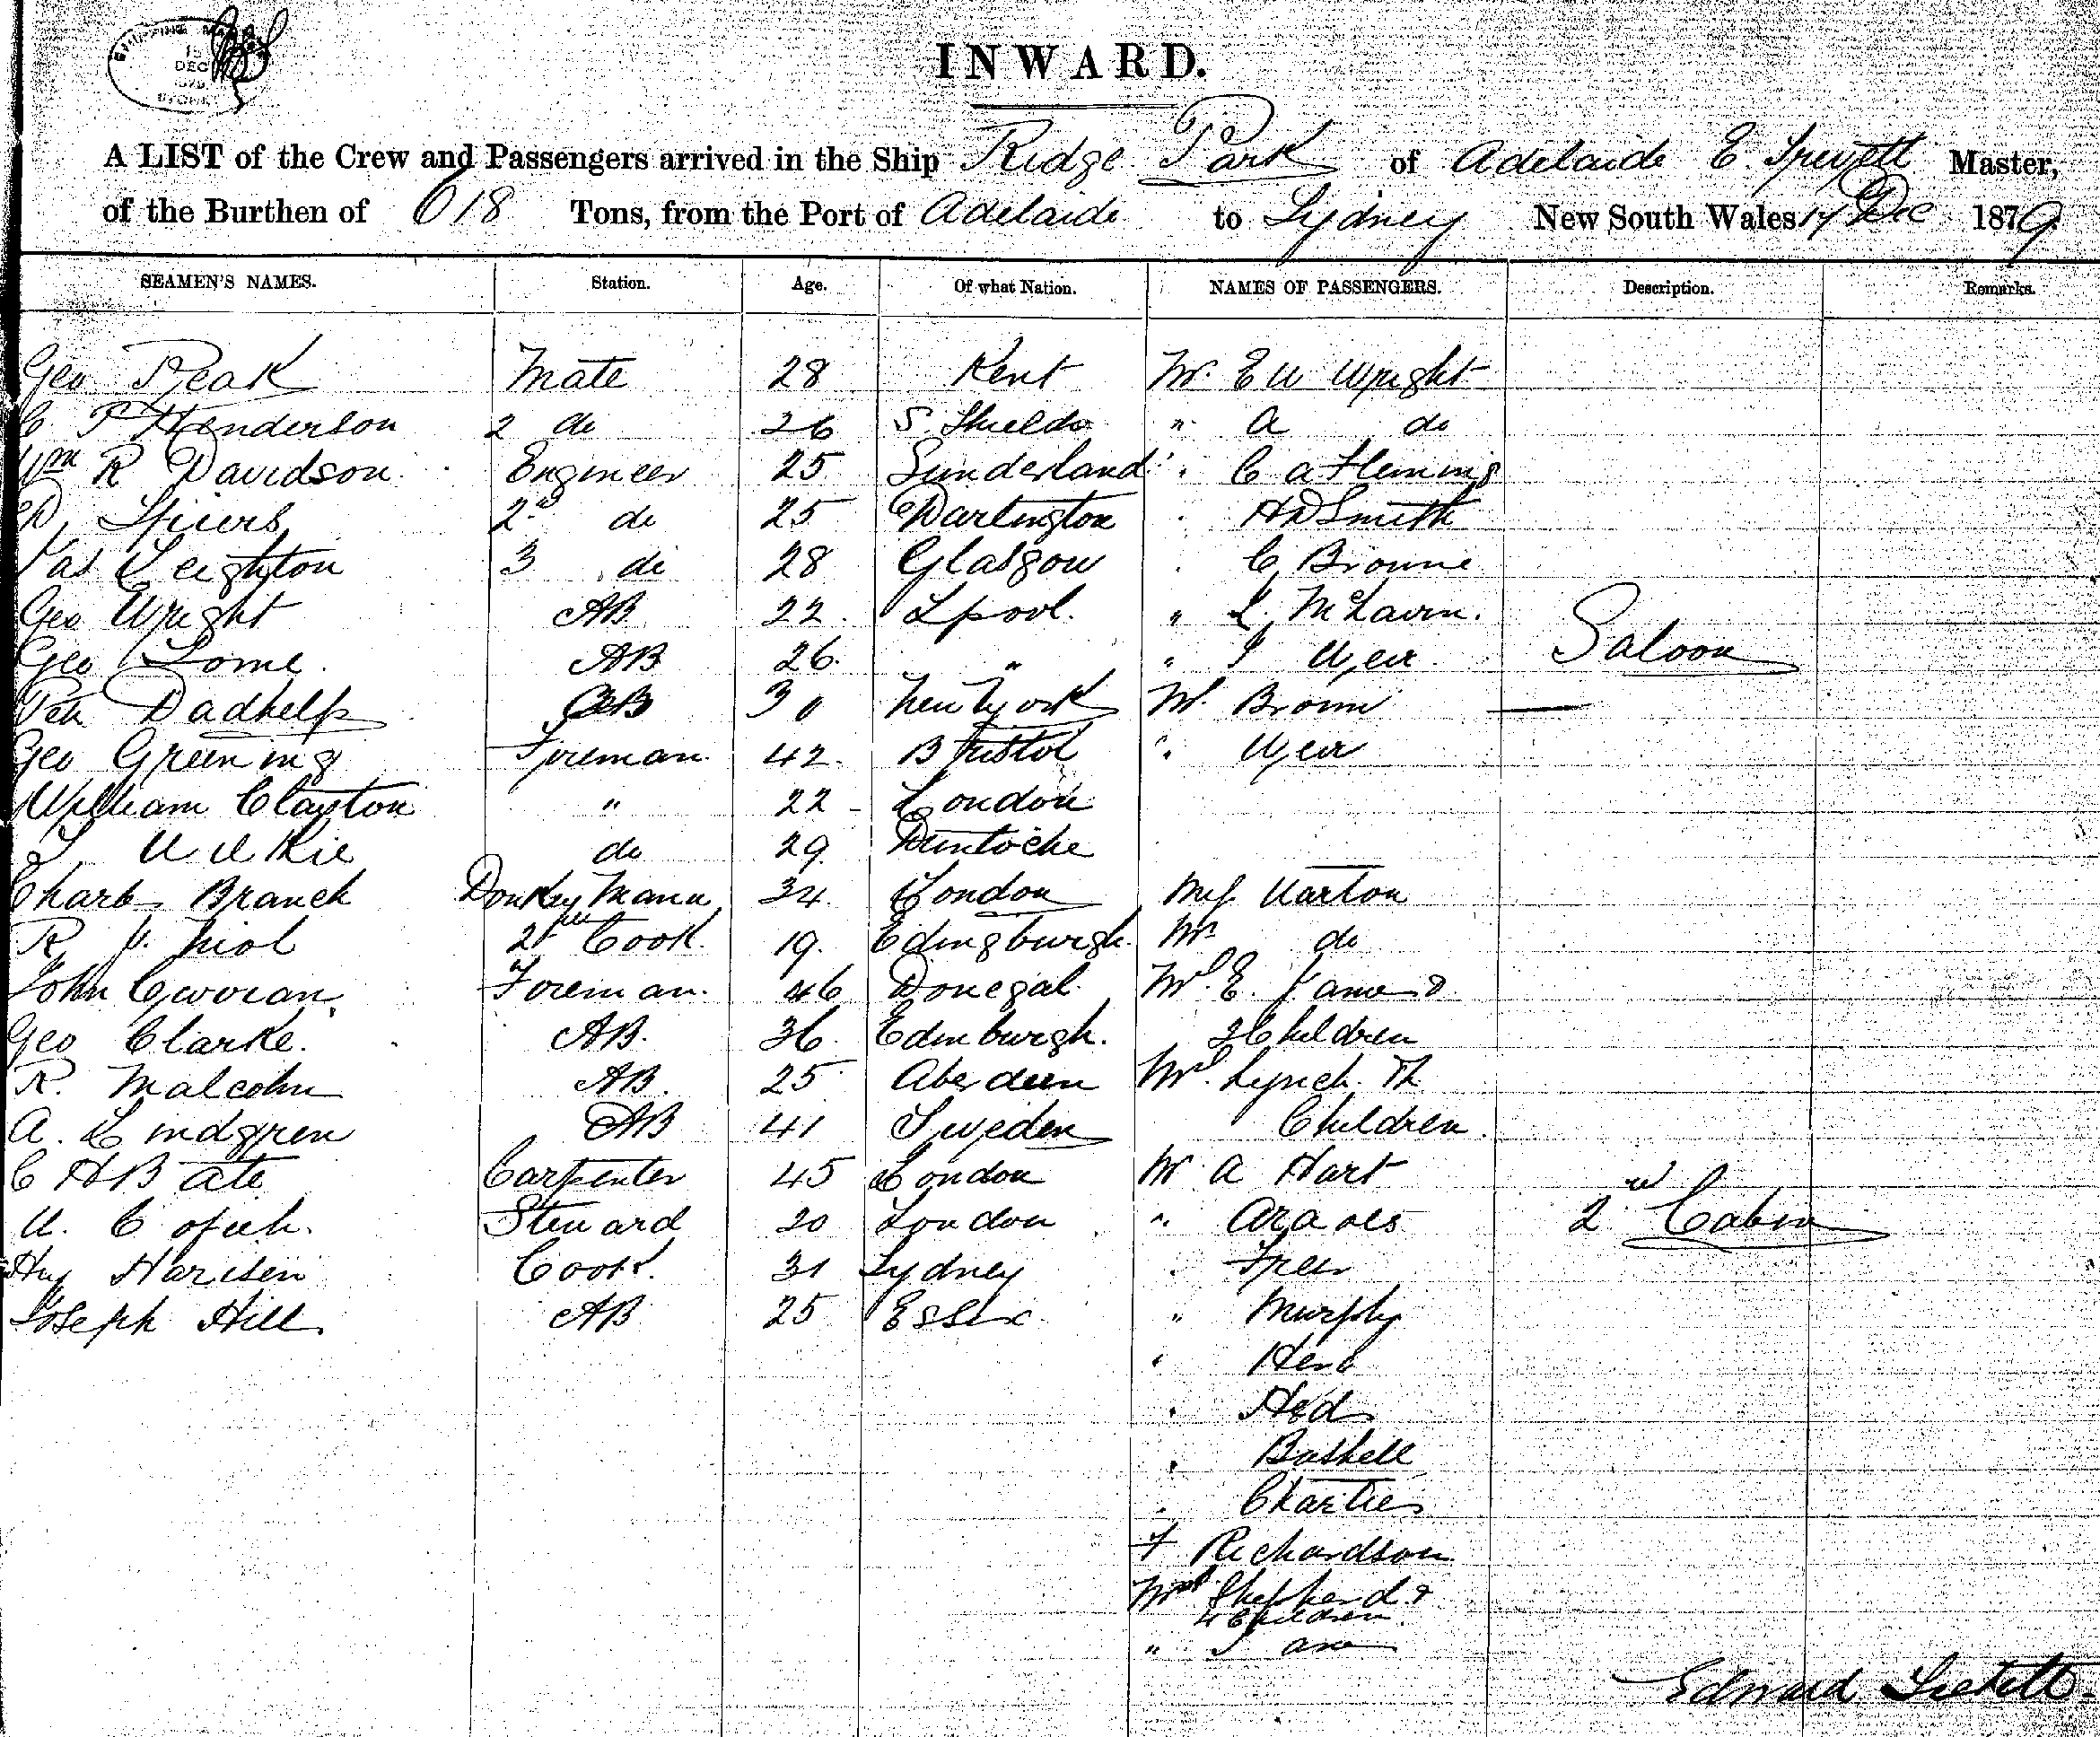 SHIPPING MA
DEC
SYDNEY
INWARD.
A LIST of the Crew and Passengers arrived in the Ship Ridge Park of Adelaide E. Master,
of the Burthen of 618 Tons, from the Port of Adelaide to Sydney New South Wales 17 Dec 1879
SEAMEN'S NAMES. Station. Age. Of what Nation. NAMES OF PASSENGERS. Description. Remarks.
Geo Peak Mate 28 Kent Mr. E W Wright
C P Henderson 2 do 26 S. Shields " A do
Wm R Davidson Engineer 25 Sunderland " C A Fleming
D. Spiers 2d do 25 Dartington " H D Smith
Jas Leighton 3 do 28 Glasgow " C Browne
Geo Wright AB 22 Lpool. " L. McLavin.
Geo Lome AB 26 " " J Weir Saloon
Dadhelp AB 30 New York Mrs. Brown
Geo Greening Foreman 42 Bristol " Weir
William Clayton " 22 London
J. Wilkie do 29
Charls Branch Donkey Mann 34 London Miss Warton
R J. Niol 2d Cook 19 Edingburgh Mr do
John Foreman 46 Donegal Mrs. E. James &
Geo Clarke. AB. 36 Edinburgh. 2 Children
R. Malcolm AB. 25 Aberdeen Mrs. Lynch. Th
A. Lindgren AB 41 Sweden Children
C H Bate Carpenter 45 London Mr A Hart
W. Steward 20 London " 2nd Cabin
Hy Harisen Cook. 31 Sydney "
Joseph Hill AB 25 Essex " Murphy
"
"
" Bashell
" Charties
F Richardson
Mrs Shepherd &
4 Children
" Jane
Edward